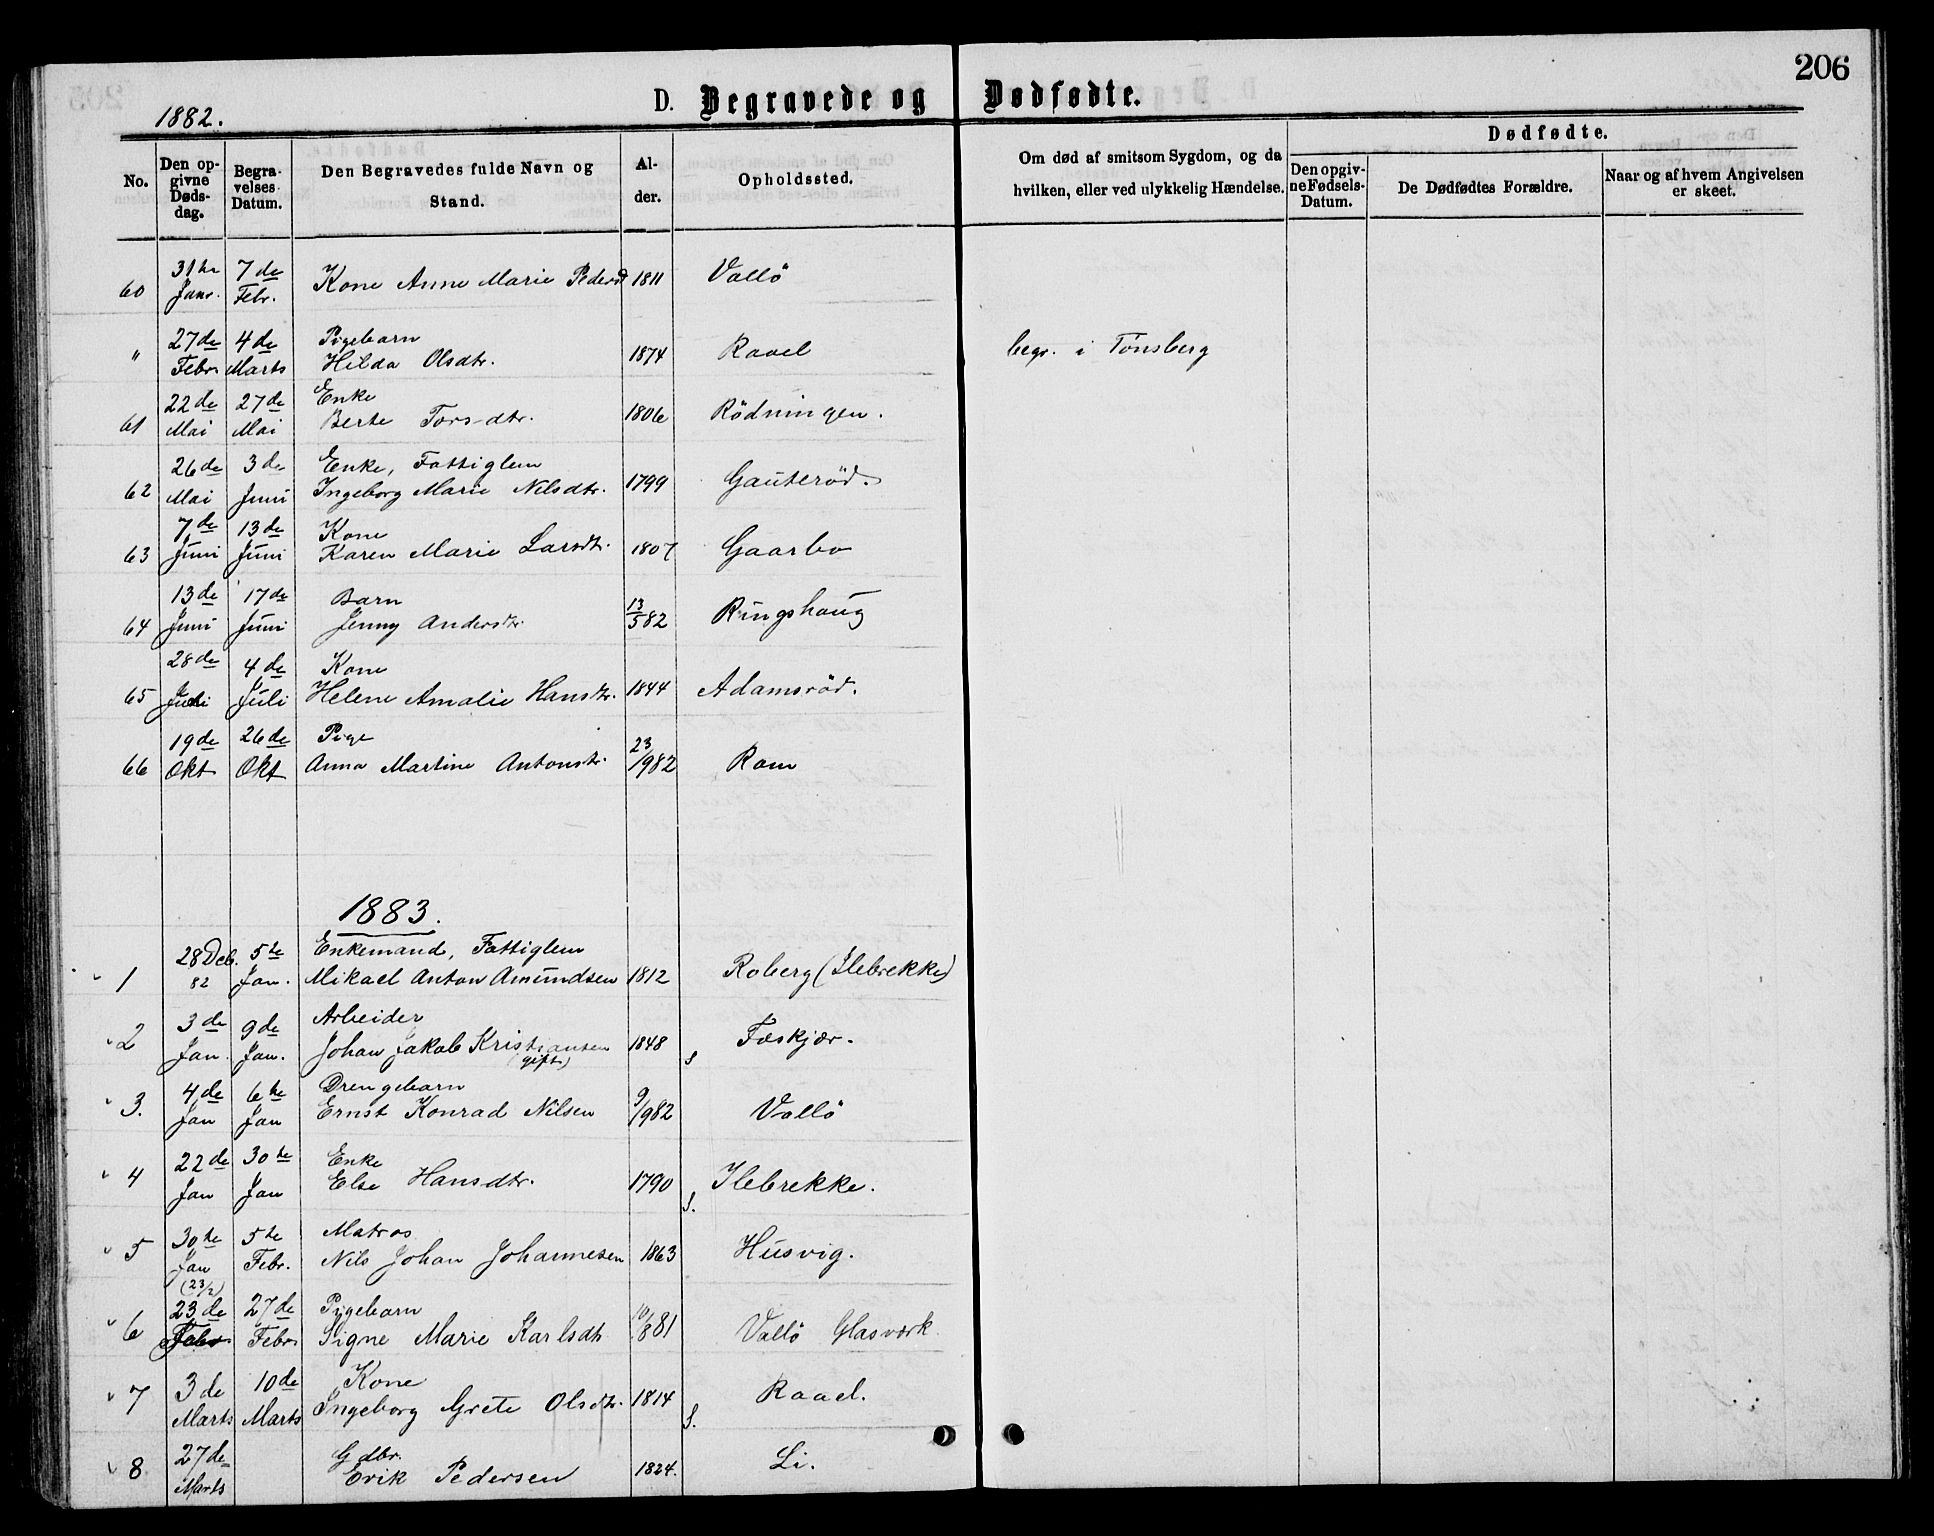 206
1882.
D. Begravede og Dødfødte.
No.
Den op-
givne
Døds-
dag.
Begra-
velses-
Datum.
Den Begravedes fulde Navn og
Stand.
Al-
der.
Opholdssted.
Om død af smitsom Sygdom, og da
hvilken, eller ved ulykkelig Hændelse.
Dødfødte.
Den opgiv-
ne Fødsels-
Datum.
De Dødfødtes Forældre.
Naar og af hvem Angivelsen
er skeet.
31te 7de
60 Janr. Febr. Kone Anne Marie Pedersd 1811 Vallö
27de 4de Pigebarn
" Febr Marts Hilda Olsdtr. 1874 Raael begr. i Tönsberg
22de 27de Enke
61 Mai Mai Berte Torsdtr. 1806 Rödningen.
26de 3de Enke, Fattiglem
62 Mai Juni Ingeborg Marie Nilsdtr. 1799 Gauteröd.
7de 13de Kone
63 Juni Juni Karen Marie Larsdtr. 1807 Gaarbo
13de 17de Barn
64 Juni Juni Jenny Andersdtr 13/5 82 Ringshaug
28de 4de Kone
65 Juli Helene Amalie Hansdtr. 1844 Adamsröd.
19de 26de Pige
66 Okt Okt Anna Martine Antonsdtr. 23/9 82 Ram
1883.
28 Deb. 5te Enkemand, Fattiglem
1 82 Jan. Mikael Anton Amundsen 1812 Roberg (Ilebrekke)
3de 9de Arbeider
2 Jan. Jan. Johan Jakob Kristiansen 1848 s Fæskjær.
(gift)
4de 6te Drengebarn
3. Jan Jan Ernst Konrad Nilsen 9/9 82 Vallö
22de 30te Enke
4 Jan Jan Else Hansdtr. 1790 s. Ilebrekke.
30te 5te Matros
5 Jan Febr. Nils Johan Johannesen 1863 Husvig.
(23/2)
23de 27de Pigebarn
6 Febr Febr Signe Marie Karlsdtr 10/8 81 Vallö Glasværk
3de 10de Kone
7 Marts Marts Ingeborg Grete Olsdtr. 1814 s. Raael.
27de Gdbr.
8 Marts Erik Pedersen 1824. Li.